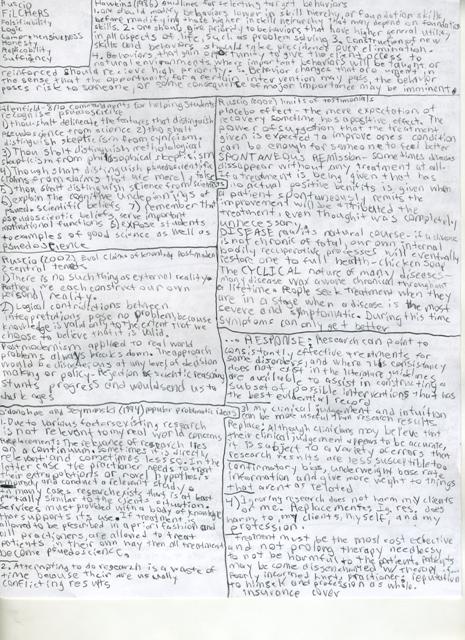 Ruscio
FILCHERS
Falsifiability
Logic
Comprehensiveness
Honesty
Replicability
Sufficiency
Hawkins (1986) guidelines for selecting target behaviors
1. One should modify behaviors lower in skill hierarchy or foundation skills
before modifying those higher in skill hierarchy that may depend on foundation
skills. 2. one should give priority to behaviors that have higher general utility
in all aspects of life, such as problem solving. 3. Construction of new
skills and behaviors should take precident over elimination.
4. Behaviors that offer opportunity to give the client access to
natural environments, where important behaviors will be taught or
reinforced should receive high priority. 5. Behavior changes that are urgent in
the sense that the opportunity for a certain intervention may pass, the behavior
poses risk to someone, or some consequence of major importance may be imminent.
Lilienfeld- 8/10 commandments for helping students
recognise pseudoscience
1) thou shalt delineate the features that distinguish
pseudoscience from science 2) thou shalt
distinguish skepticism from cynicism
3) Thou shalt distinguish methological
skepticism from philosophical skepticism
4) Thou shalt distinguish pseudoscientific
claims from claims that are merely false
5) thou shalt distinguish science from scientists
6) explain the cognitive underpinnings of
pseudoscientific beliefs 7) remember that
pseudoscientific beliefs serve important
motivational functions 8) expose students
to examples of good science as well as
psuedoscience
Ruscio (2002) Eval claims of knowledge Postmodern
central tenets
1) there is no such thing as external reality.
Rather, we each construct our own
personal reality.
2) Logical contradictions between
interpretations pose no problem because
knowledge is valid only to the extent that we
choose to believe that it is valid
Postmodernism applied to real world
problems always breaks down. The approach
would be disastrous at any level of decision
making or policy. Rejection of basic reasoning
stunts progress and would send us to
dark ages
Ruscio (2002) Limits of testimonials
Placebo effect- The mere expectation of
recovery sometimes has a positive effect. The
power of suggestion that the treatment
given is expected to improve ones condition
can be enough for someone to feel better
SPONTANEOUS REMISSION- Sometimes disease
disappear without any treatment at all.
If a treatment is being given that has
no actual positive benefits is given when
a patient spontaneously remits the
improvement will be attributed the
treatment, even thought it was completely
unnecessary.
DISEASE runs its natural course- if a disease
is not chronic of fatal, our own internal
bodily recuperative processes will eventually
restore one to full health. Chicken Soup
The CYCLICAL nature of many diseases-
Many disease wax a wane chronical throughout
a lifetime. People seek treatment when they
are in a stage when a disease is the most
severe and symptomatic. During this time
symptoms can only get better
and Szymanski (1994) popular problematic ideas
1. Due to various factors existing research
is not relevant to my real world concerns
Replacements The relevance of research lies
on a continuum, sometimes it is directly
relevant and sometimes less. In the
latter case the practitioner needs to
In many cases researchers study is at least
partially similar to the clients situation.
services must provided with a body of knowledge
that supports its use. If treatment is
allowed to be prescribed in a priori fashion and
all practitioners are allowed to treat
patients in their own may then all treatment
become psuedoscience.
2. Attempting to do research is a waste of
time because their are usually
conflicting results
... RESPONSE: Research can point to
consistantly effective treatments for
some disorders, and where this consistancy
does not exist in the literature guidelines
are available to assist in constructing a
subset of possible interventions that has
the best evidential record
3) my clinical judgement and intuition
can be more useful than research results.
Replace: Although clinicians may believe that
their clinical judgement appears to be accurate,
it is subject to a variety of errors then
research results are less susceptible to
confirmatory bias, underweigh base rate
information and give more weight to things
that arent related.
4) Ignouring research does not harm my clients
or me. Replacement: Ig. res. does
harm to, my clients, myself, and my
profession
Treatment must be the most cost effective
and not prolong therapy needlessly
to not be harmful to the patient. Patients
may become disenchanted w/ therapy if
poorly informed hurts practitioner reputation
to himself and profession as whole.
Insurance cover